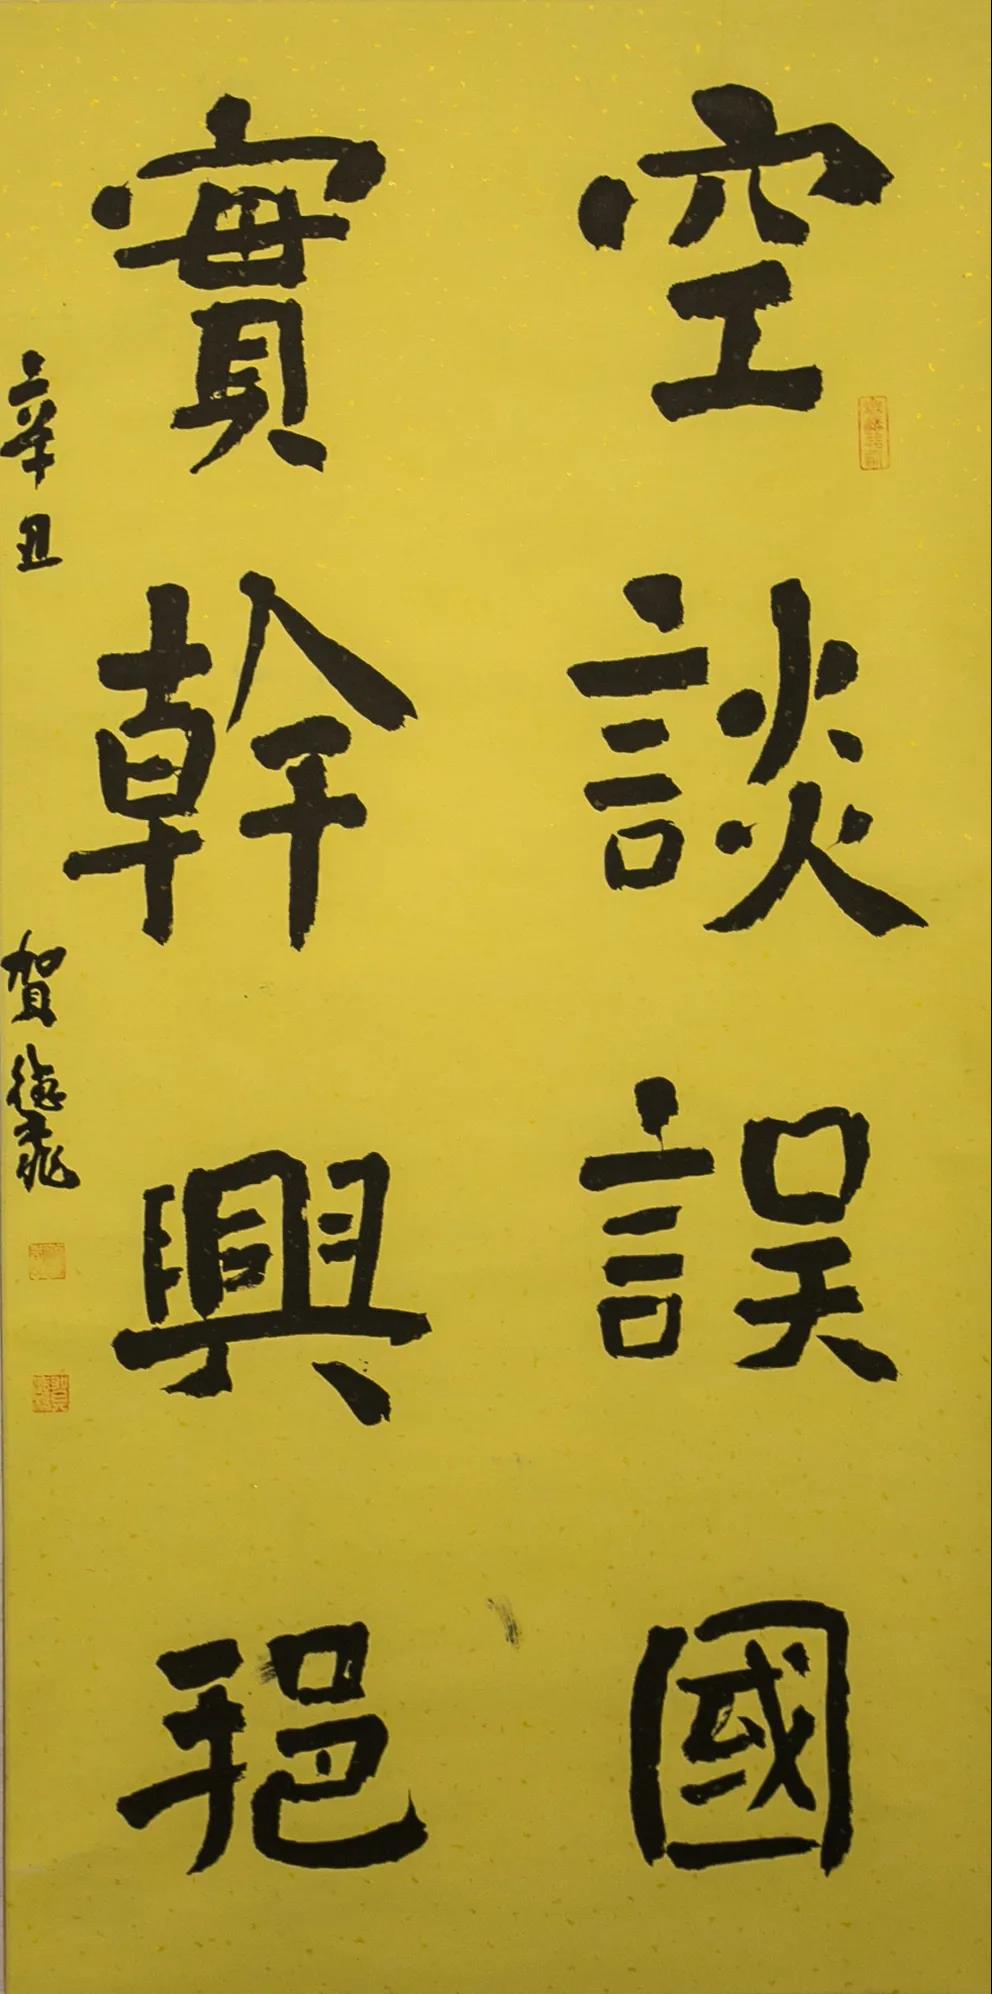 空談誤國
實幹興邦
辛丑
賀德